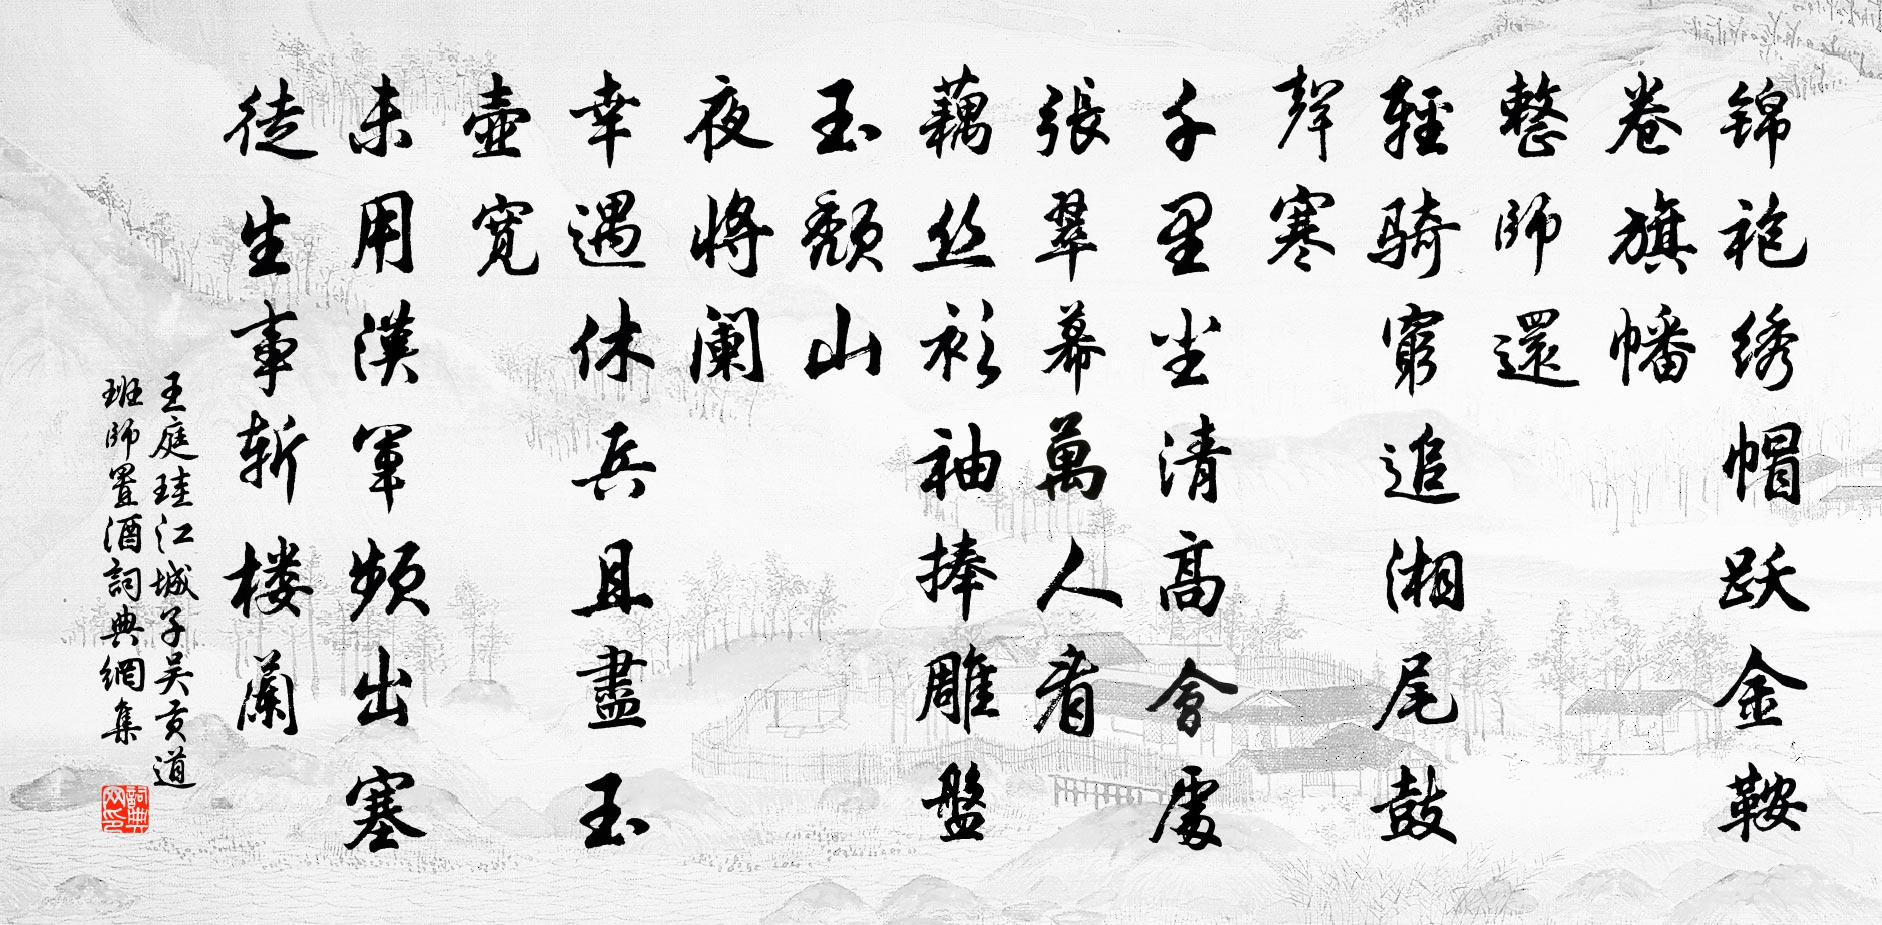 錦袍绣帽跃金鞍
卷旗幡
整師還
輕騎窮追湘尾鼓
聲寒
千里尘清高會處
張翠幕萬人看
藕丝衫袖捧雕盤
玉颓山
夜將阑
幸遇休兵且盡玉
壺寬
未用漢軍頻出塞
徒生事斩楼蘭
王庭珪江城子吴贡道
班師置酒詞典網集
詞典
网印